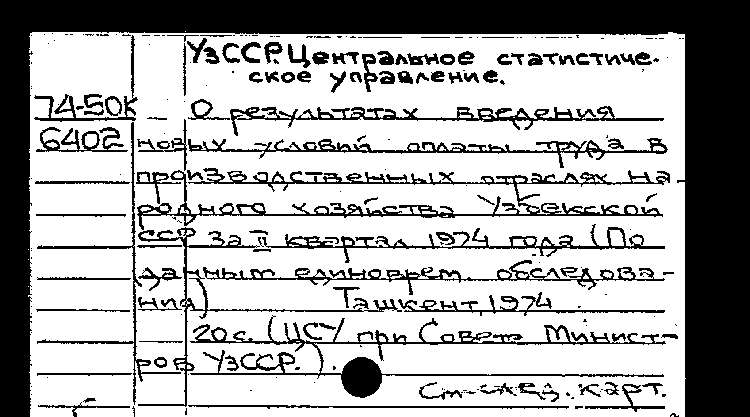 УзССР. Центральное статистиче-
ское управление.
74-50К О результатах введения
6402 новых условий оплаты труда в
производственных отраслях на-
родного хозяйства Узбекской
ССР за II квартал 1974 года (По
данным единоврем. обследова-
ния) Ташкент, 1974.
20 с. (ЦСУ при Совете Минист-
ров УзССР.).
См. след. карт.